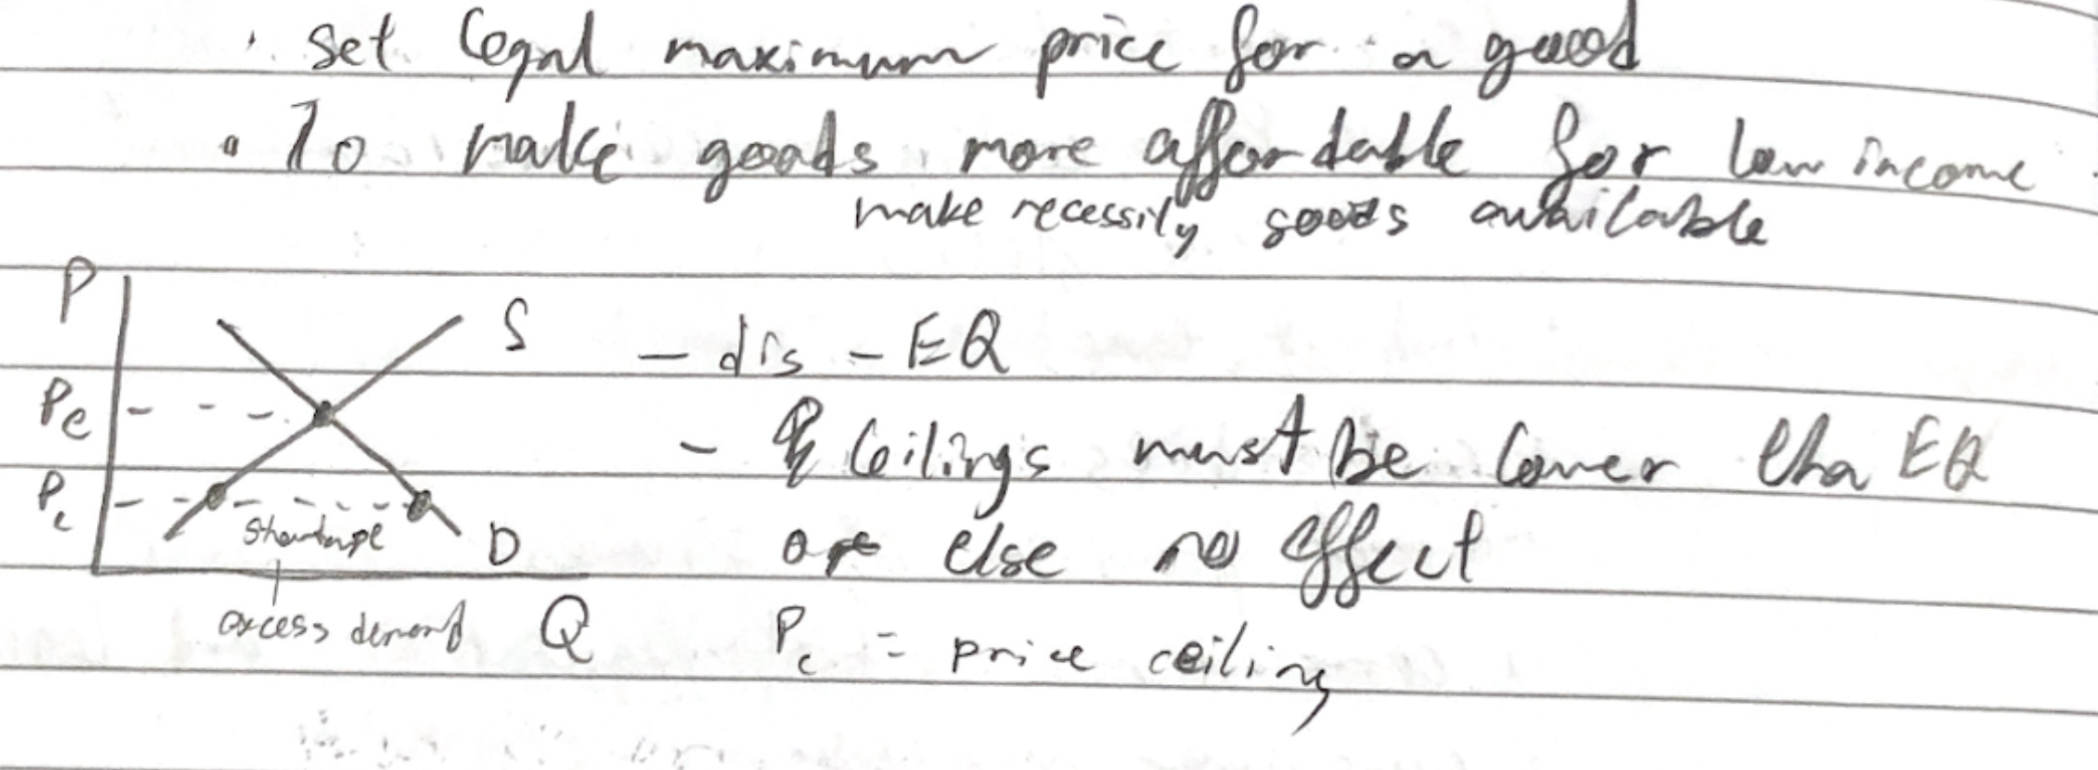 · set legal maximum price for a good
· To make goods more affordable for low income
make necessity goods available
P
S
- dis - EQ
Pe
- Ceilings must be lower tha EQ
Pc
shortage
D
or else no effect
excess demand
Q
Pc = price ceiling